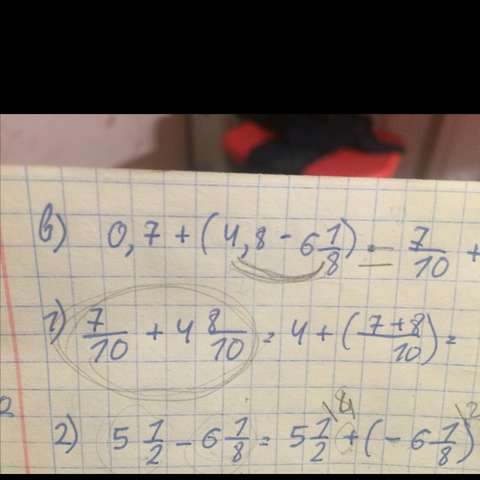 в) 0,7 + (4,8 - 6 1/8) = 7/10 +
1) 7/10 + 4 8/10 = 4 + (7+8/10) =
2) 5 1/2 - 6 1/8 = 5 1/2 \4 + (- 6 1/8)